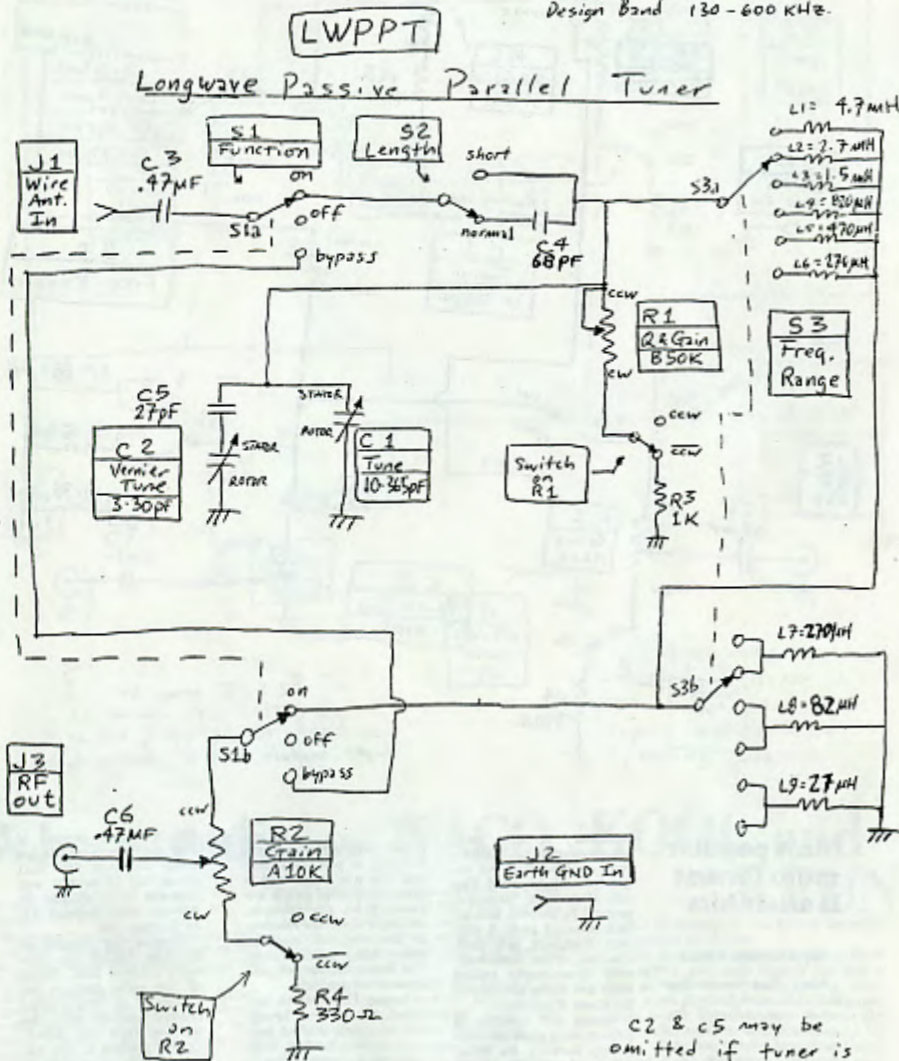 Design Band 130-600 KHz.
LWPPT
Longwave Passive Parallel Tuner
J1
Wire
Ant.
In
C3
.47µF
S1
Function
S1a
on
off
bypass
S2
Length
short
normal
C4
68pF
S3a
L1= 4.7mH
L2=2.7mH
L3=1.5mH
L4=820µH
L5=470µH
L6=276µH
S3
Freq.
Range
ccw
R1
Q&Gain
B50K
cw
ccw
ccw
Switch
on
R1
R3
1K
C5
27pF
C2
Vernier
Tune
3-30pf
STATOR
ROTOR
STATOR
ROTOR
C1
Tune
10-365pf
S3b
L7=270µH
L8=82µH
L9=27µH
on
off
bypass
S1b
J3
RF
out
C6
.47MF
ccw
R2
Gain
A10K
cw
ccw
ccw
R4
330Ω
Switch
on
R2
J2
Earth GND In
C2 & C5 may be
omitted if tuner is